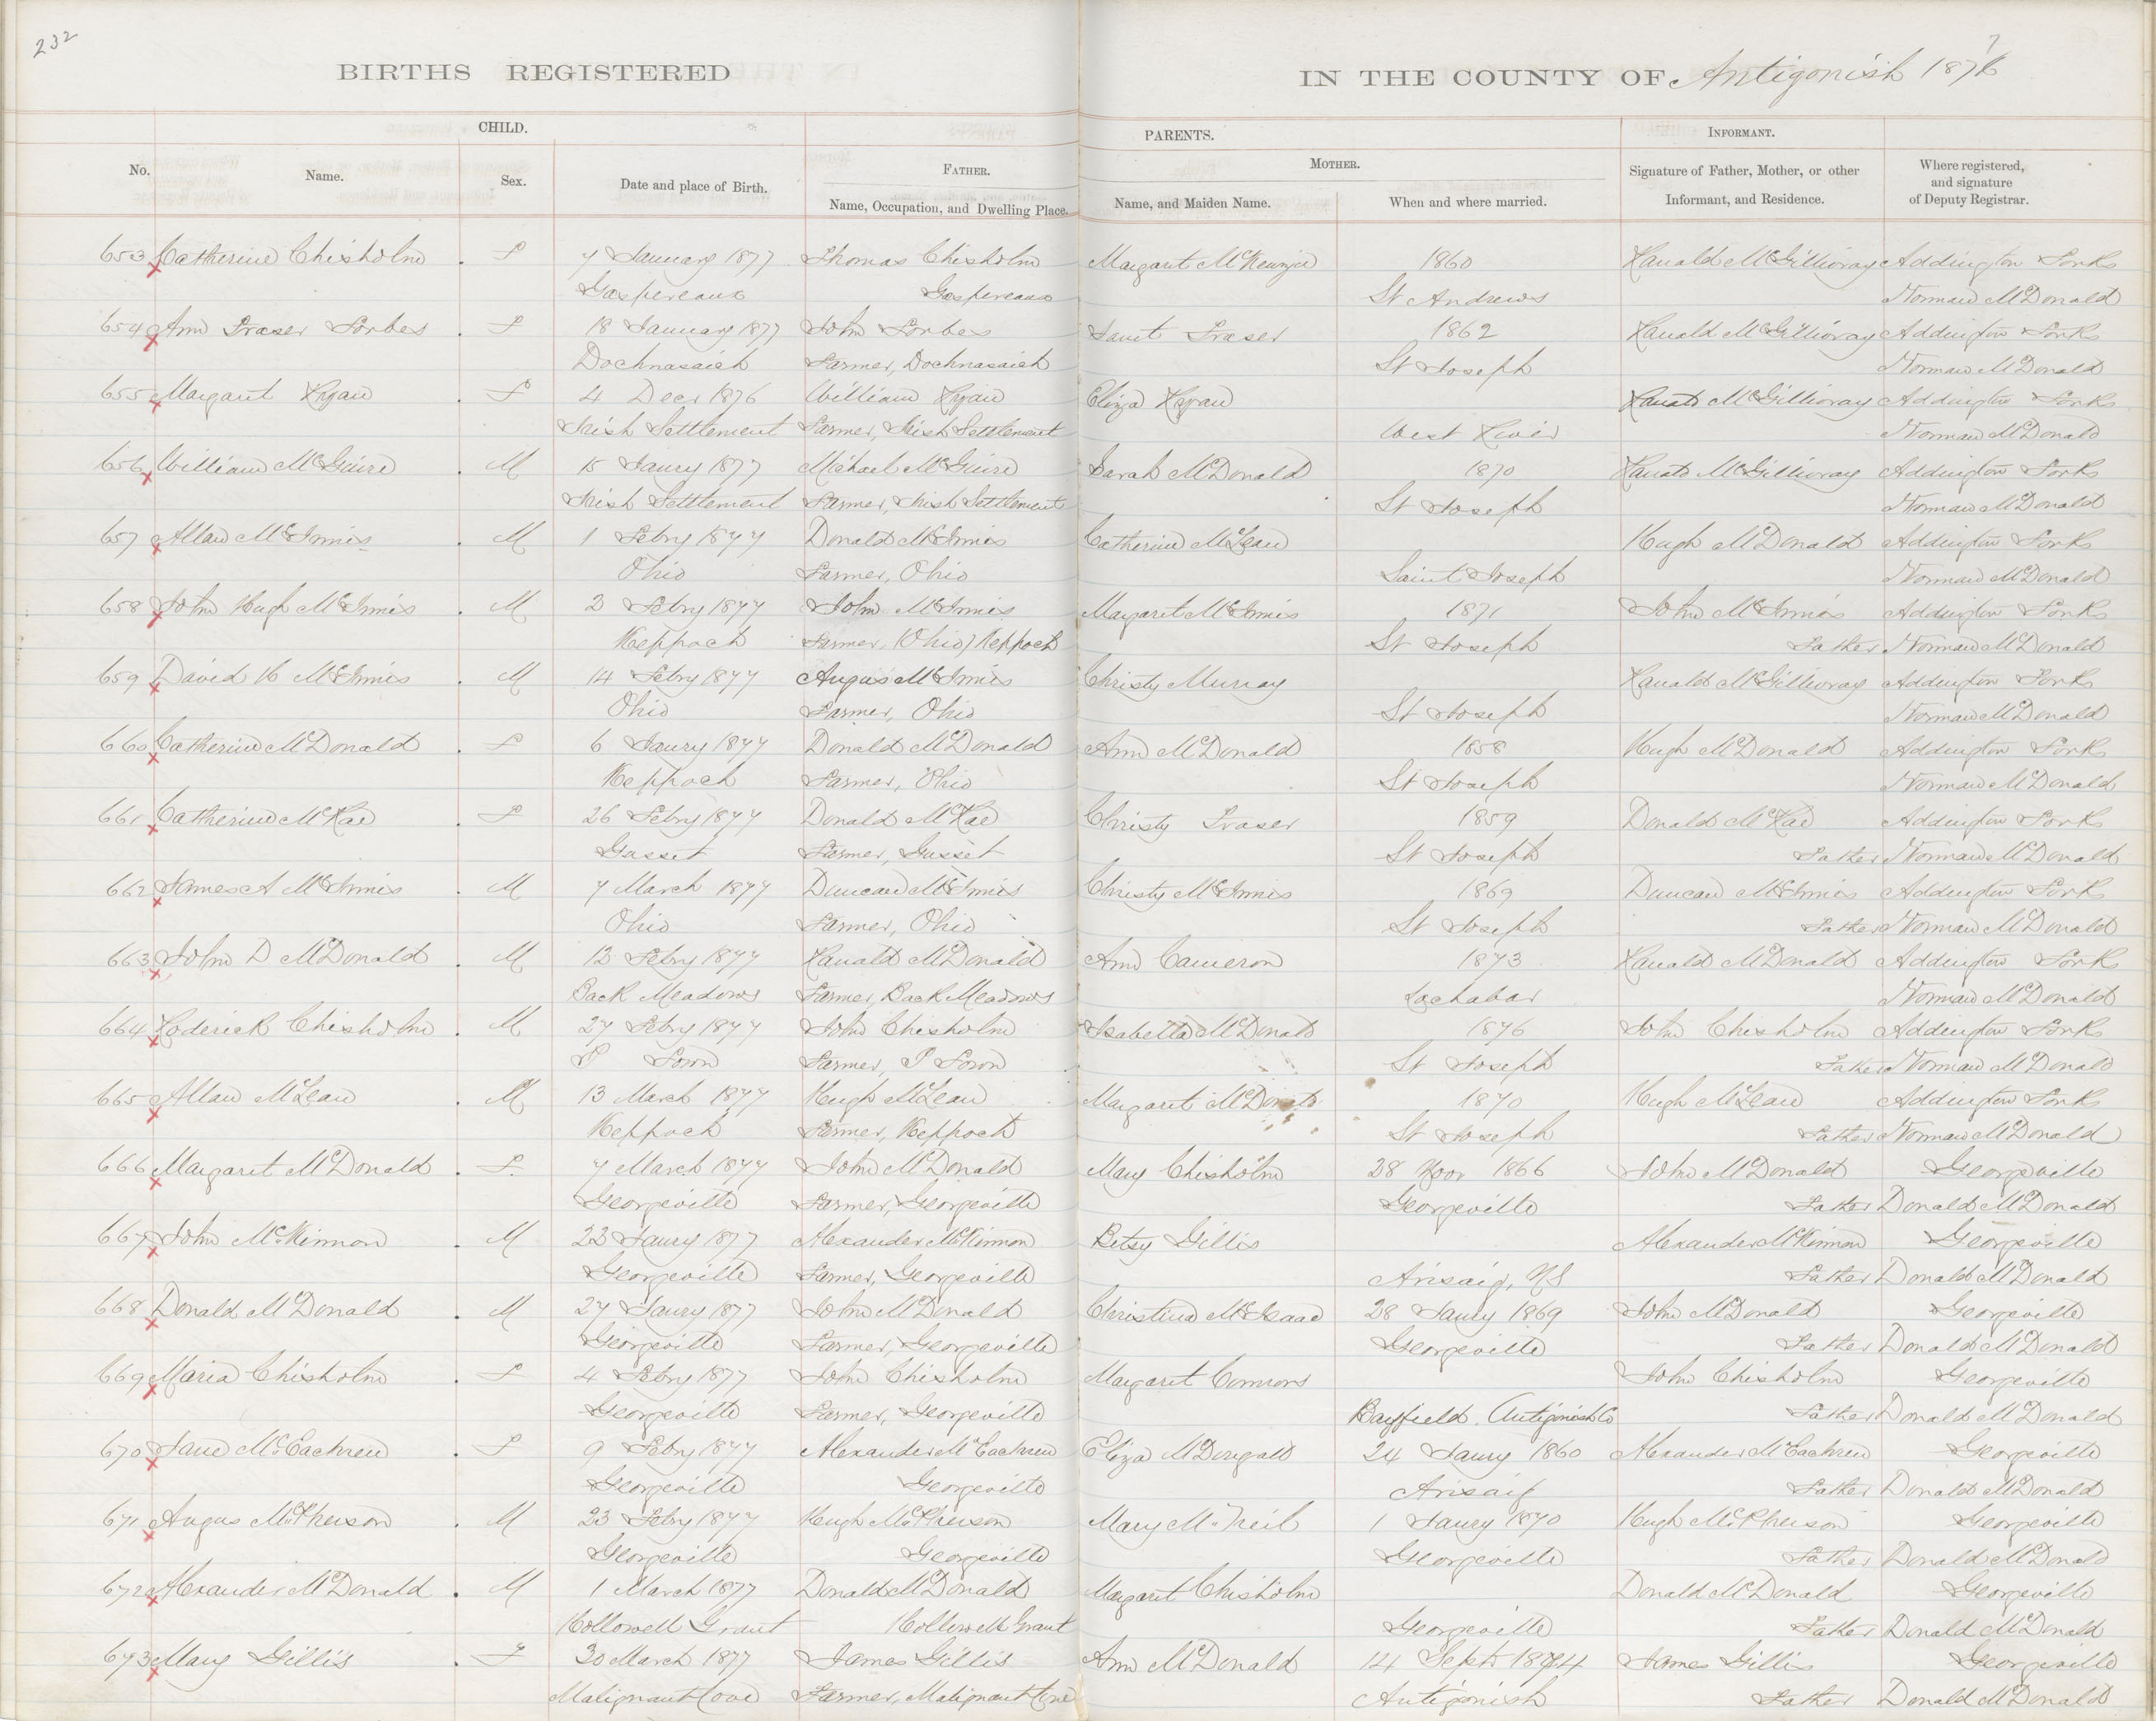 232
BIRTHS REGISTERED IN THE COUNTY OF Antigonish 1876 7
CHILD. PARENTS. INFORMANT.
No. Name. Sex. Date and place of Birth. FATHER. MOTHER. Signature of Father, Mother, or other Where registered, and signature
Name, Occupation, and Dwelling Place. Name, and Maiden Name. When and where married. Informant, and Residence. of Deputy Registrar.
653 Catherine Chisholm . F 7 January 1877 Thomas Chisholm Margaret McKenzie 1860 Ranald McGillivray Addington Forks
Gaspereaux Gaspereaux St Andrews Norman McDonald
654 Ann Fraser Forbes . F 18 January 1877 John Forbes Janet Fraser 1862 Ranald McGillivray Addington Forks
Dochnasaich Farmer, Dochnasaich St Joseph Norman McDonald
655 Margaret Ryan . F 4 Decr 1876 William Ryan Eliza Ryan Ranald McGillivray Addington Forks
Irish Settlement Farmer, Irish Settlement West River Norman McDonald
656 William McGuire . M 15 Janry 1877 Michael McGuire Sarah McDonald 1870 Ranald McGillivray Addington Forks
Irish Settlement Farmer, Irish Settlement St Joseph Norman McDonald
657 Allan McInnis . M 1 Febry 1877 Donald McInnis Catherine McLean Hugh McDonald Addington Forks
Ohio Farmer, Ohio Saint Joseph Norman McDonald
658 John Hugh McInnis . M 2 Febry 1877 John McInnis Margaret McInnis 1871 John McInnis Addington Forks
Keppoch Farmer, (Ohio) Keppoch St Joseph Father Norman McDonald
659 David H McInnis . M 14 Febry 1877 Angus McInnis Christy Murray Ranald McGillivray Addington Forks
Ohio Farmer, Ohio St Joseph Norman McDonald
660 Catherine McDonald . F 6 Janry 1877 Donald McDonald Ann McDonald 1858 Hugh McDonald Addington Forks
Keppoch Farmer, Ohio St Joseph Norman McDonald
661 Catherine McRae . F 26 Febry 1877 Donald McRae Christy Fraser 1859 Donald McRae Addington Forks
Gusset Farmer, Gusset St Joseph Father Norman McDonald
662 James A McInnis . M 7 March 1877 Duncan McInnis Christy McInnis 1869 Duncan McInnis Addington Forks
Ohio Farmer, Ohio St Joseph Father Norman McDonald
663 John D McDonald . M 12 Febry 1877 Ranald McDonald Ann Cameron 1873 Ranald McDonald Addington Forks
Back Meadows Farmer, Back Meadows Lochabar Norman McDonald
664 Roderick Chisholm . M 27 Febry 1877 John Chisholm Isabella McDonald 1876 John Chisholm Addington Forks
Town Farmer, Town St Joseph Father Norman McDonald
665 Allan McLean . M 13 March 1877 Hugh McLean Margaret McDonald 1870 Hugh McLean Addington Forks
Keppoch Farmer, Keppoch St Joseph Father Norman McDonald
666 Margaret McDonald . F. 7 March 1877 John McDonald Mary Chisholm 28 Novr 1866 John McDonald Georgeville
Georgeville Farmer, Georgeville Georgeville Father Donald McDonald
667 John McKinnon . M 22 Janry 1877 Alexander McKinnon Betsy Gillis Alexander McKinnon Georgeville
Georgeville Farmer, Georgeville Arisaig, NS Father Donald McDonald
668 Donald McDonald . M 27 Janry 1877 John McDonald Christina McIsaac 28 Janry 1869 John McDonald Georgeville
Georgeville Farmer, Georgeville Georgeville Father Donald McDonald
669 Maria Chisholm . F 4 Febry 1877 John Chisholm Margaret Connors John Chisholm Georgeville
Georgeville Farmer, Georgeville Bayfield. Antigonish Co Father Donald McDonald
670 Jane McEachren . F 9 Febry 1877 Alexander McEachren Eliza McDougall 24 Janry 1860 Alexander McEachren Georgeville
Georgeville Georgeville Arisaig Father Donald McDonald
671 Angus McPherson . M 23 Febry 1877 Hugh McPherson Mary McNeil 1 Janry 1870 Hugh McPherson Georgeville
Georgeville Georgeville Georgeville Father Donald McDonald
672 Alexander McDonald . M 1 March 1877 Donald McDonald Margaret Chisholm Donald McDonald Georgeville
Hollowell Grant Hollowell Grant Georgeville Father Donald McDonald
673 Mary Gillis . F 30 March 1877 James Gillis Ann McDonald 14 Sept. 1874 James Gillis Georgeville
Malignant Cove Farmer, Malignant Cove Antigonish Father Donald McDonald